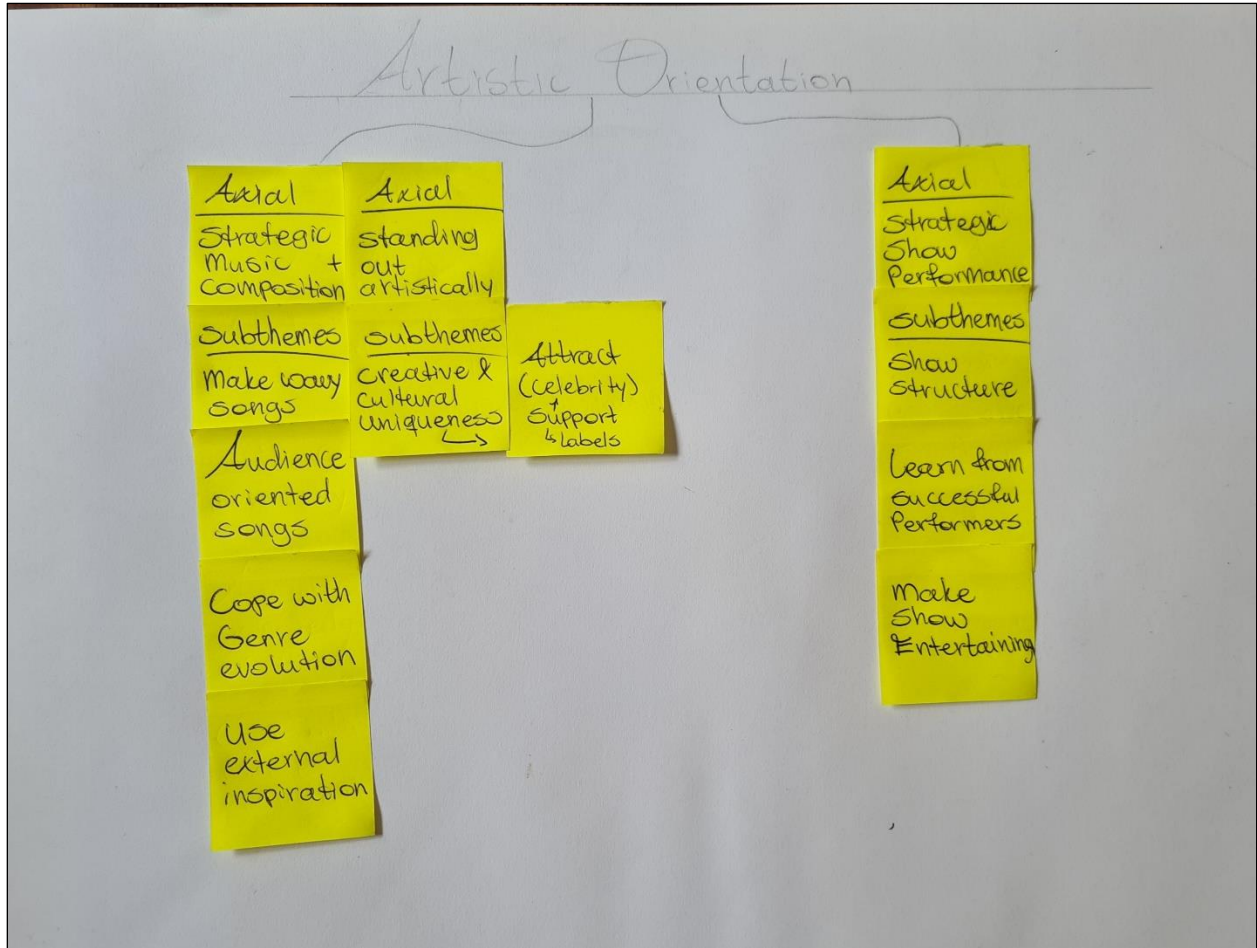 Artistic Orientation
Axial
Strategic
Music +
Composition
Subthemes
Make wavy
songs
Audience
oriented
songs
Cope with
Genre
evolution
Use
external
inspiration
Axial
Standing
out
artistically
Subthemes
Creative &
Cultural
Uniqueness
↳
Attract
(celebrity)
+
Support
↳ Labels
Axial
Strategic
Show
Performance
Subthemes
Show
structure
Learn from
successful
Performers
Make
Show
Entertaining